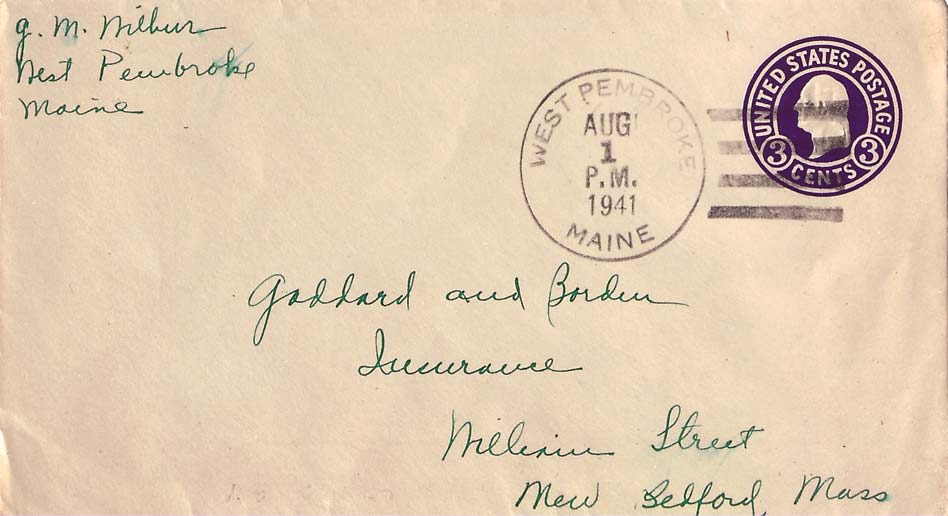 G. M. Wilbur
West Pembroke
Maine
WEST PEMBROKE
AUG
1
P.M.
1941
MAINE
UNITED STATES POSTAGE
3 CENTS 3
Goddard and Borden
Insurance
William Street
New Bedford, Mass